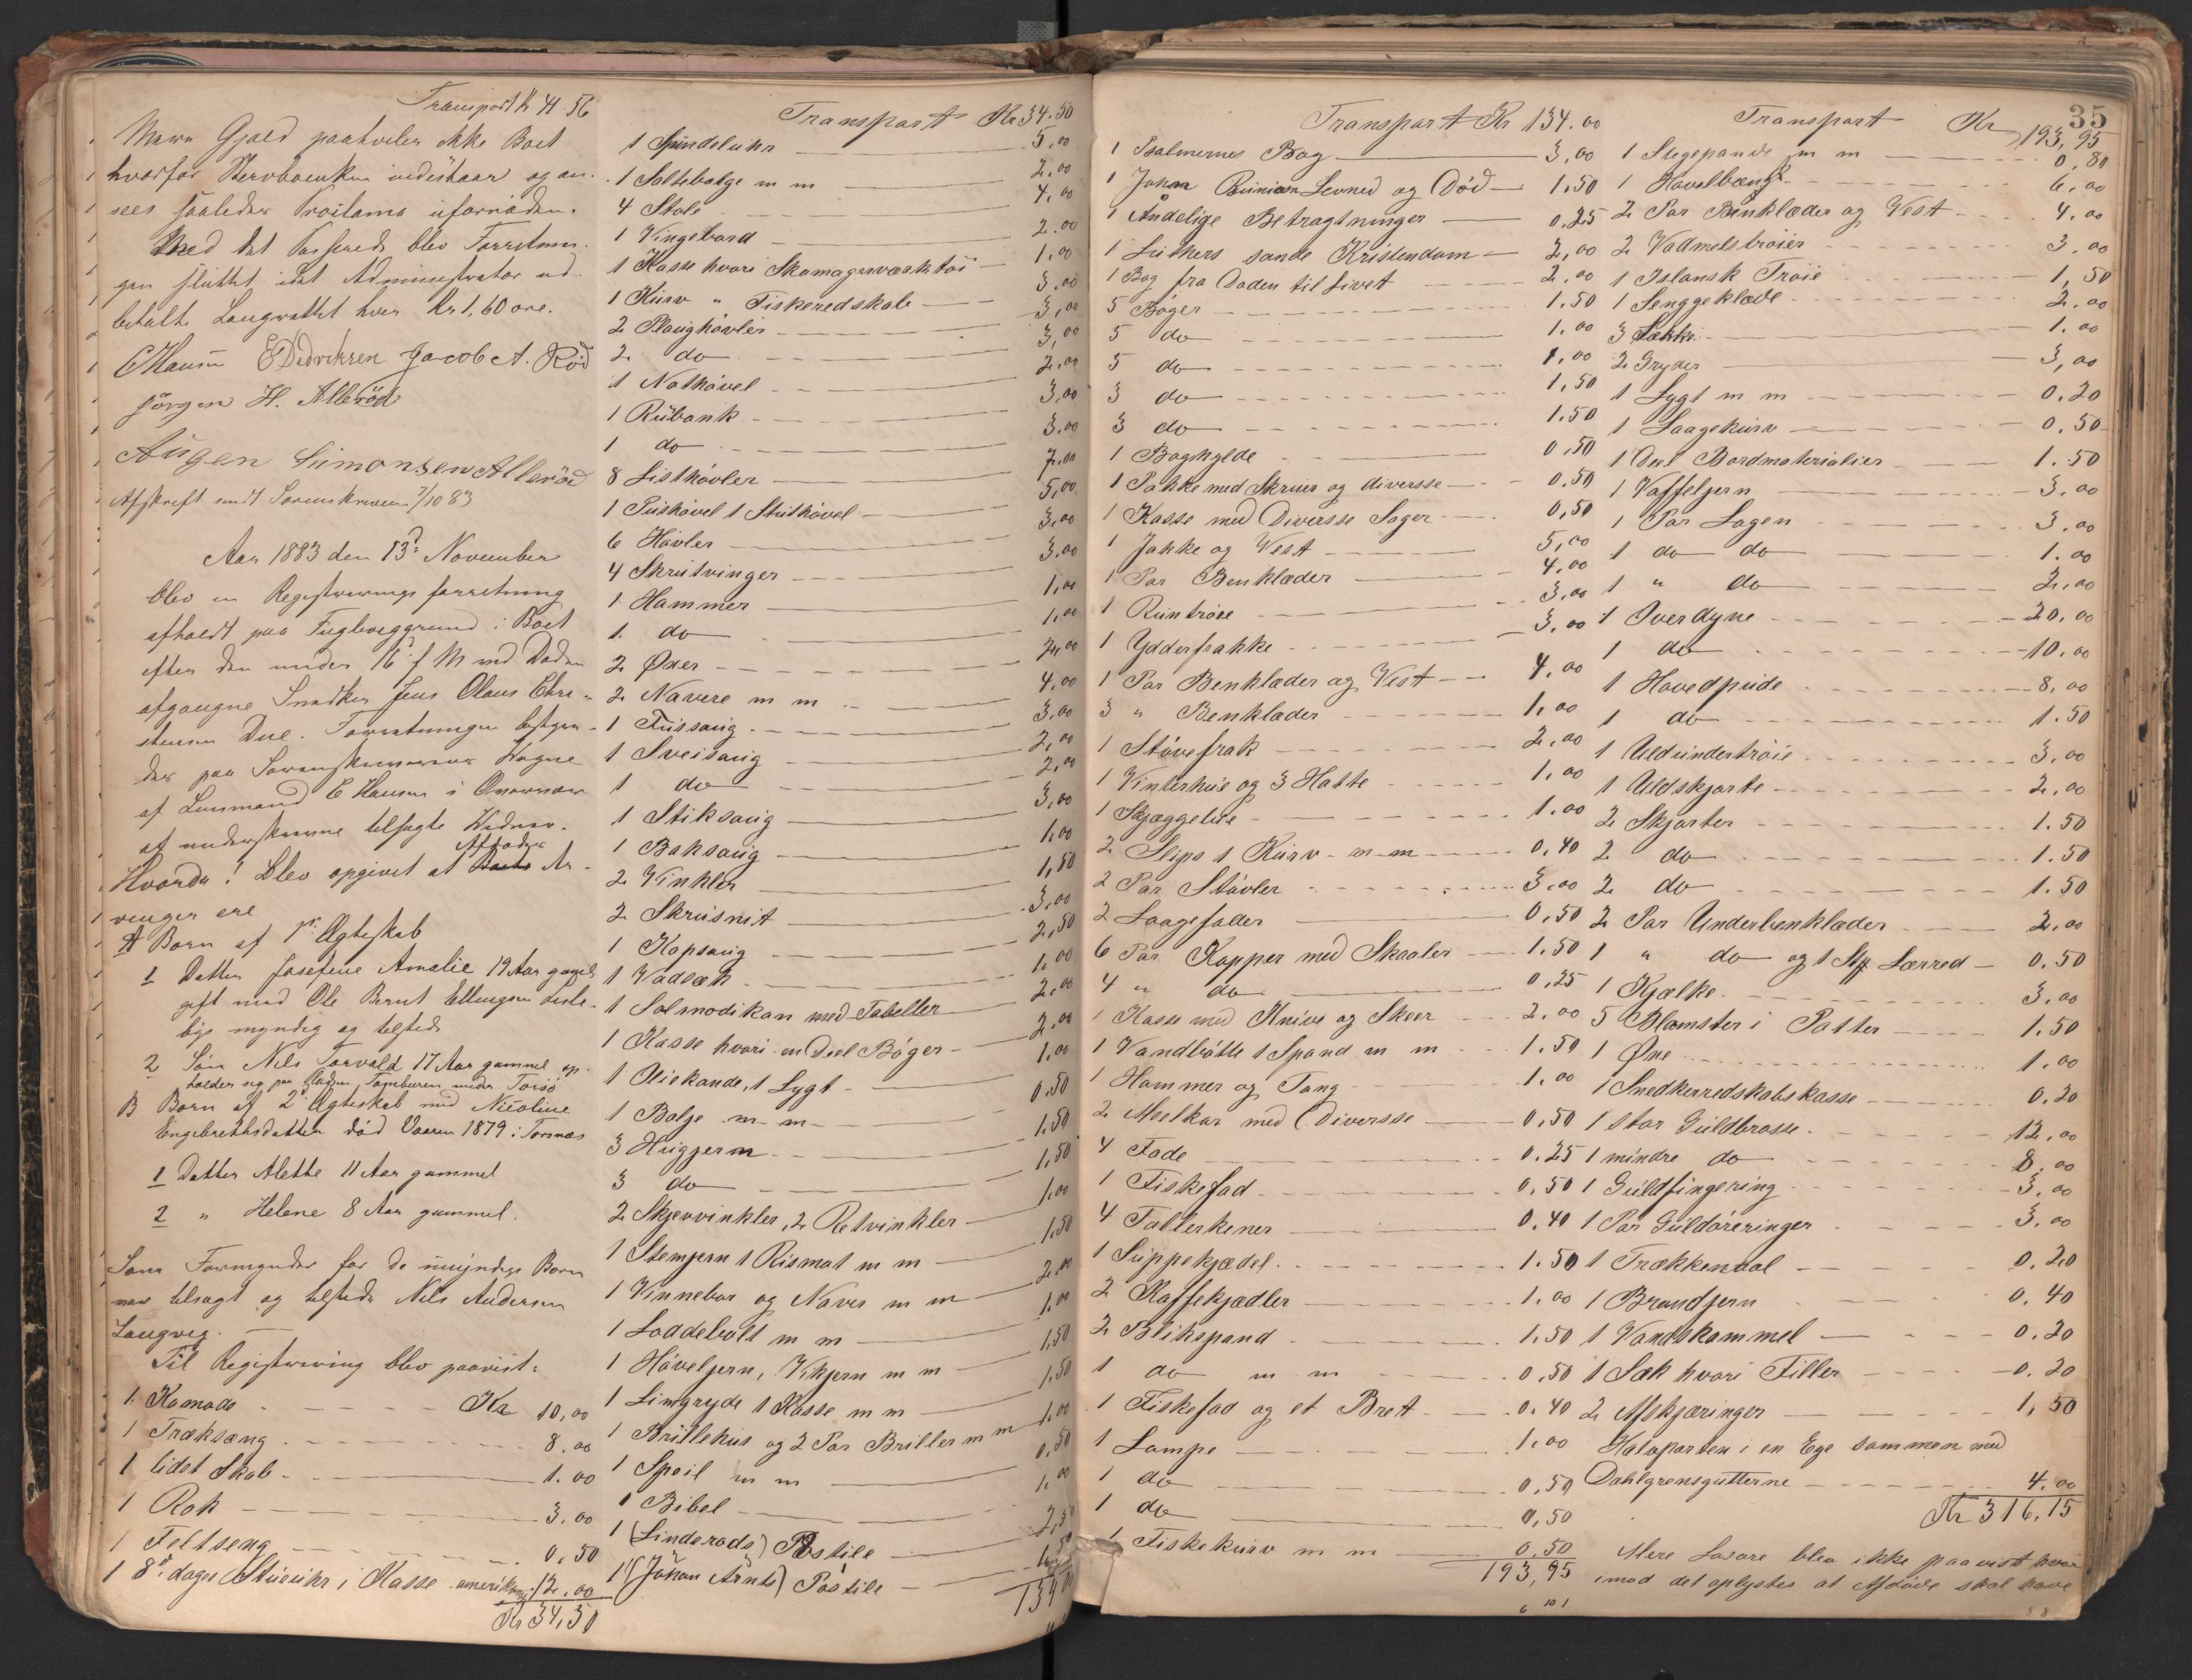 Transport Kr 41.56
Mere Gjæld paahviler ikke Boet
hvorfor Stervboenken vedstaar og an-
sees saaledes Proclama ufornøden.
Med det Passerede blev Forretnin-
gen sluttet idet Administrator ud-
betalte Laugrettet hver Kr 1,60 øre.
C Hansen E Didriksen Jacob A. Rød
Jørgen H. Allerød
Augen Simonsen Allerød
Afskrift sendt Sorenskriveren 7/10 83
Aar 1883 den 13de November
blev en Registrerings forretning
afholdt paa Fugleviggrund i Boet
efter den under 16 f M ved Døden
afgangne Snedker Jens Olaus Chri-
stensen Due. Forretningen bestyre-
des paa Sorenskriverens Vegne
af Lensmand C Hansen i Overvær
af underskrevne tilsagte Vidner.
Hvorda! Blev opgivet at Afdødes Ar-
vinger ere
A Børn af 1ste Ægteskab
1 Datter Josefine Amalie 19 Aar gammel
gift med Ole Bernt Ellingsen
myndig og tilstede
2 Søn Nils Torvald 17 Aar gammel op-
holder sig paa under Torsø
B Børn af 2d Ægteskab med Nicoline
Engebrethsdatter død Vaaren 1879 i Torsnæs
1 Datter Alethe 11 Aar gammel
2 " Helene 8 Aar gammel.
Som Formynder for de umyndige Børn
var tilsagt og tilstede Nils Andersen
Langvig.
Til Registrering blev paavist:
1 Komode Kr 10,00
1 Træksæng 8.00
1 lidet Skab 1.00
1 Rok 3.00
1 Feltseng 0,50
1 8te dages Stueuhr i Kasse amerikansk 12.00
Kr 34,50
Transport Kr 34.50
1 Spindeluhr 5,00
1 Saltebalge m m 2.00
4 Stole 4,00
1 Vingebord 2.00
1 Kasse hvori Skomagerværktøi 1.00
1 Kurv " Fiskeredskab 3.00
2 Ploughøvler 3,00
2 do 3,00
1 Nothøvel 2.00
1 Rubank 3,00
1 do 3.00
8 Listhøvler 7.00
1 Pushøvel 1 Stuthøvel 5,00
6 Høvler 3,00
4 Skrutvinger 3.00
1 Hammer 1,00
1 do 1,00
2 Øxer 4,00
2 Navere m m 4.00
1 Fussaug 3,00
1 Sveisaug 2,00
1 do 2,00
1 Stiksaug 3,00
1 Baksaug 1,00
2 Vinkler 1,50
2 Skrusnit 3,00
1 Kapsaug 2,50
1 Vadsæk 1,00
1 Salmodikan med Tabeller 2,00
1 Kasse hvori en Deel Bøger 2,00
1 Oliekande, 1 Lygt 1,00
1 Balje m m 0.50
3 Hugjern 1.50
3 do 1,50
2 Skjevvinkler, 2 Retvinkler 1,00
1 Stemjern 1 Rismat m m 1,50
1 Vinnebor og Naver m m 2,00
1 Loddebolt m m 1,00
1 Høveljern, Vikjern m m 1,50
1 Limgryde 1 Kasse m m 1,50
1 Brillehus og 2 Par Briller m m 1,00
1 Speil m m 0,50
1 Bibel 1,00
1 (Linderods) Postile 2,50
1 (Johan Arnts) Postile 1,50
134,00
35
Transport Kr 134.00
1 Psalmernes Bog 3,00
1 Johan Bunians Levned og Død 1.50
1 Åndelige Betragtninger 0,25
1 Luthers sande Kristendom 2,00
1 Bog fra Døden til Livet 2,00
5 Bøger 1.50
5 do 1.00
5 do 1.00
3 do 1,50
3 do 1.50
1 Boghylde 0,50
1 Pakke med Skruer og diversse 0.50
1 Kasse med Diversse Sager 0,50
1 Jakke og Vest 5,00
1 Par Benklæder 4.00
1 Runtrøie 3,00
1 Ydderfrakke 3,00
1 Par Benklæder og Vest 4,00
3 " Benklæder 1,00
1 Støvefrak 2,00
1 Vinterhue og 3 Hatte 1,00
1 Skjæggelue 1.00
2 Slips 1 Kurv m m 0,40
2 Par Støvler 3,00
2 Laagefader 0,50
6 Par Kopper med Skaaler 1.50
4 " do 0,25
1 Kasse med Knive og Skeer 2.00
1 Vandbøtte 1 Spand m m 1.50
1 Hammer og Tang 1,00
2 Melkar med Diversse 0,50
4 Fade 0.25
1 Fiskefad 0,50
4 Tallerkener 0.40
1 Suppekjædel 1.50
2 Kaffekjædler 1.00
2 Blikspand 1.50
1 do m m 0,50
1 Fiskefad og et Bret 0.40
1 Lampe 1,00
1 do 0,50
1 do 0,50
1 Fiskekurv m m 0,50
193,95
Transport Kr 193,95
1 Stegepande m m 0,80
1 Høvelbænk 6,00
2 Par Benklæder og Vest 4,00
2 Vadmelstrøier 3,00
1 Islansk Trøie 1,50
1 Senggeklæde 2,00
3 Sække 1.00
2 Gryder 3,00
1 Lygt m m 0.20
1 Laagekurv 0,50
1 Deel Bordmaterialier 1.50
1 Vaffeljern 3,00
1 Par Lagen 3,00
1 do do 1.00
1 " do 2,00
1 Overdyne 20,00
1 do 10.00
1 Hovedpude 8,00
1 do 1.50
1 Uldundertrøie 3,00
1 Uldskjorte 2,00
2 Skjorter 1.50
2 do 1.50
2 do 1.50
2 Par Underbenklæder 2,00
1 " do og 1 Stk Lærred 0.50
1 Kjælke 3,00
5 Blomster i Potter 1.50
1 Øxe 1.00
1 Snedkerredskabskasse 0.20
1 stor Guldbrosse 12,00
1 mindre do 8,00
1 Guldfingering 3,00
1 Par Guldøreringer 3,00
1 Trækkenaal 0.20
1 Brandjern 0.40
1 Vandskammel 0.20
1 Sæk hvori Filler 0.20
2 Afskjæringer 1,50
Halvparten i en Ege sammen med
Dahlgrensgutterne 4.00
Kr 316,15
Mere Løsøre blev ikke paavist hvor
imod det oplystes at Afdøde skal have